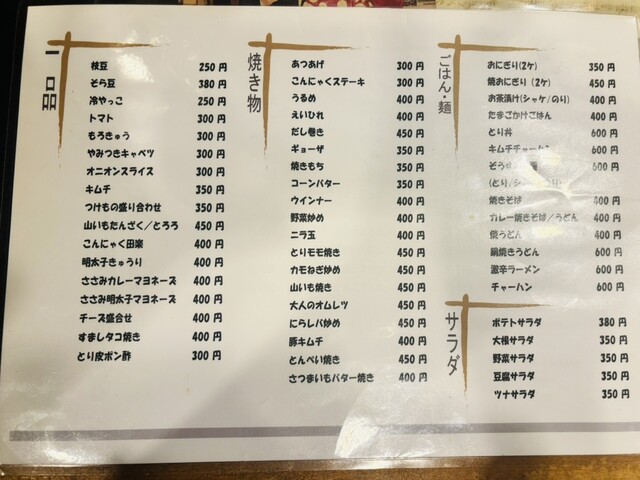 一品
枝豆 250円
そら豆 380円
冷やっこ 250円
トマト 300円
もろきゅう 300円
やみつきキャベツ 300円
オニオンスライス 300円
キムチ 350円
つけもの盛り合わせ 350円
山いもたんざく/とろろ 450円
こんにゃく田楽 400円
明太子きゅうり 400円
ささみカレーマヨネーズ 400円
ささみ明太子マヨネーズ 400円
チーズ盛合せ 400円
すましタコ焼き 400円
とり皮ポン酢 300円
焼き物
あつあげ 300円
こんにゃくステーキ 300円
うるめ 400円
えいひれ 400円
だし巻き 450円
ギョーザ 350円
焼きもち 350円
コーンバター 350円
ウインナー 400円
野菜炒め 400円
ニラ玉 400円
とりモモ焼き 450円
カモねぎ炒め 450円
山いも焼き 450円
大人のオムレツ 450円
にらレバ炒め 450円
豚キムチ 400円
とんぺい焼き 450円
さつまいもバター焼き 400円
ごはん・麺
おにぎり(2ケ) 350円
焼おにぎり(2ケ) 450円
お茶漬け(シャケ/のり) 400円
たまごかけごはん 400円
とり丼 600円
キムチチャーハン 600円
600円
焼きそば 400円
カレー焼きそば/うどん 400円
焼うどん 400円
鍋焼きうどん 600円
激辛ラーメン 600円
チャーハン 600円
サラダ
ポテトサラダ 380円
大根サラダ 350円
野菜サラダ 350円
豆腐サラダ 350円
ツナサラダ 350円